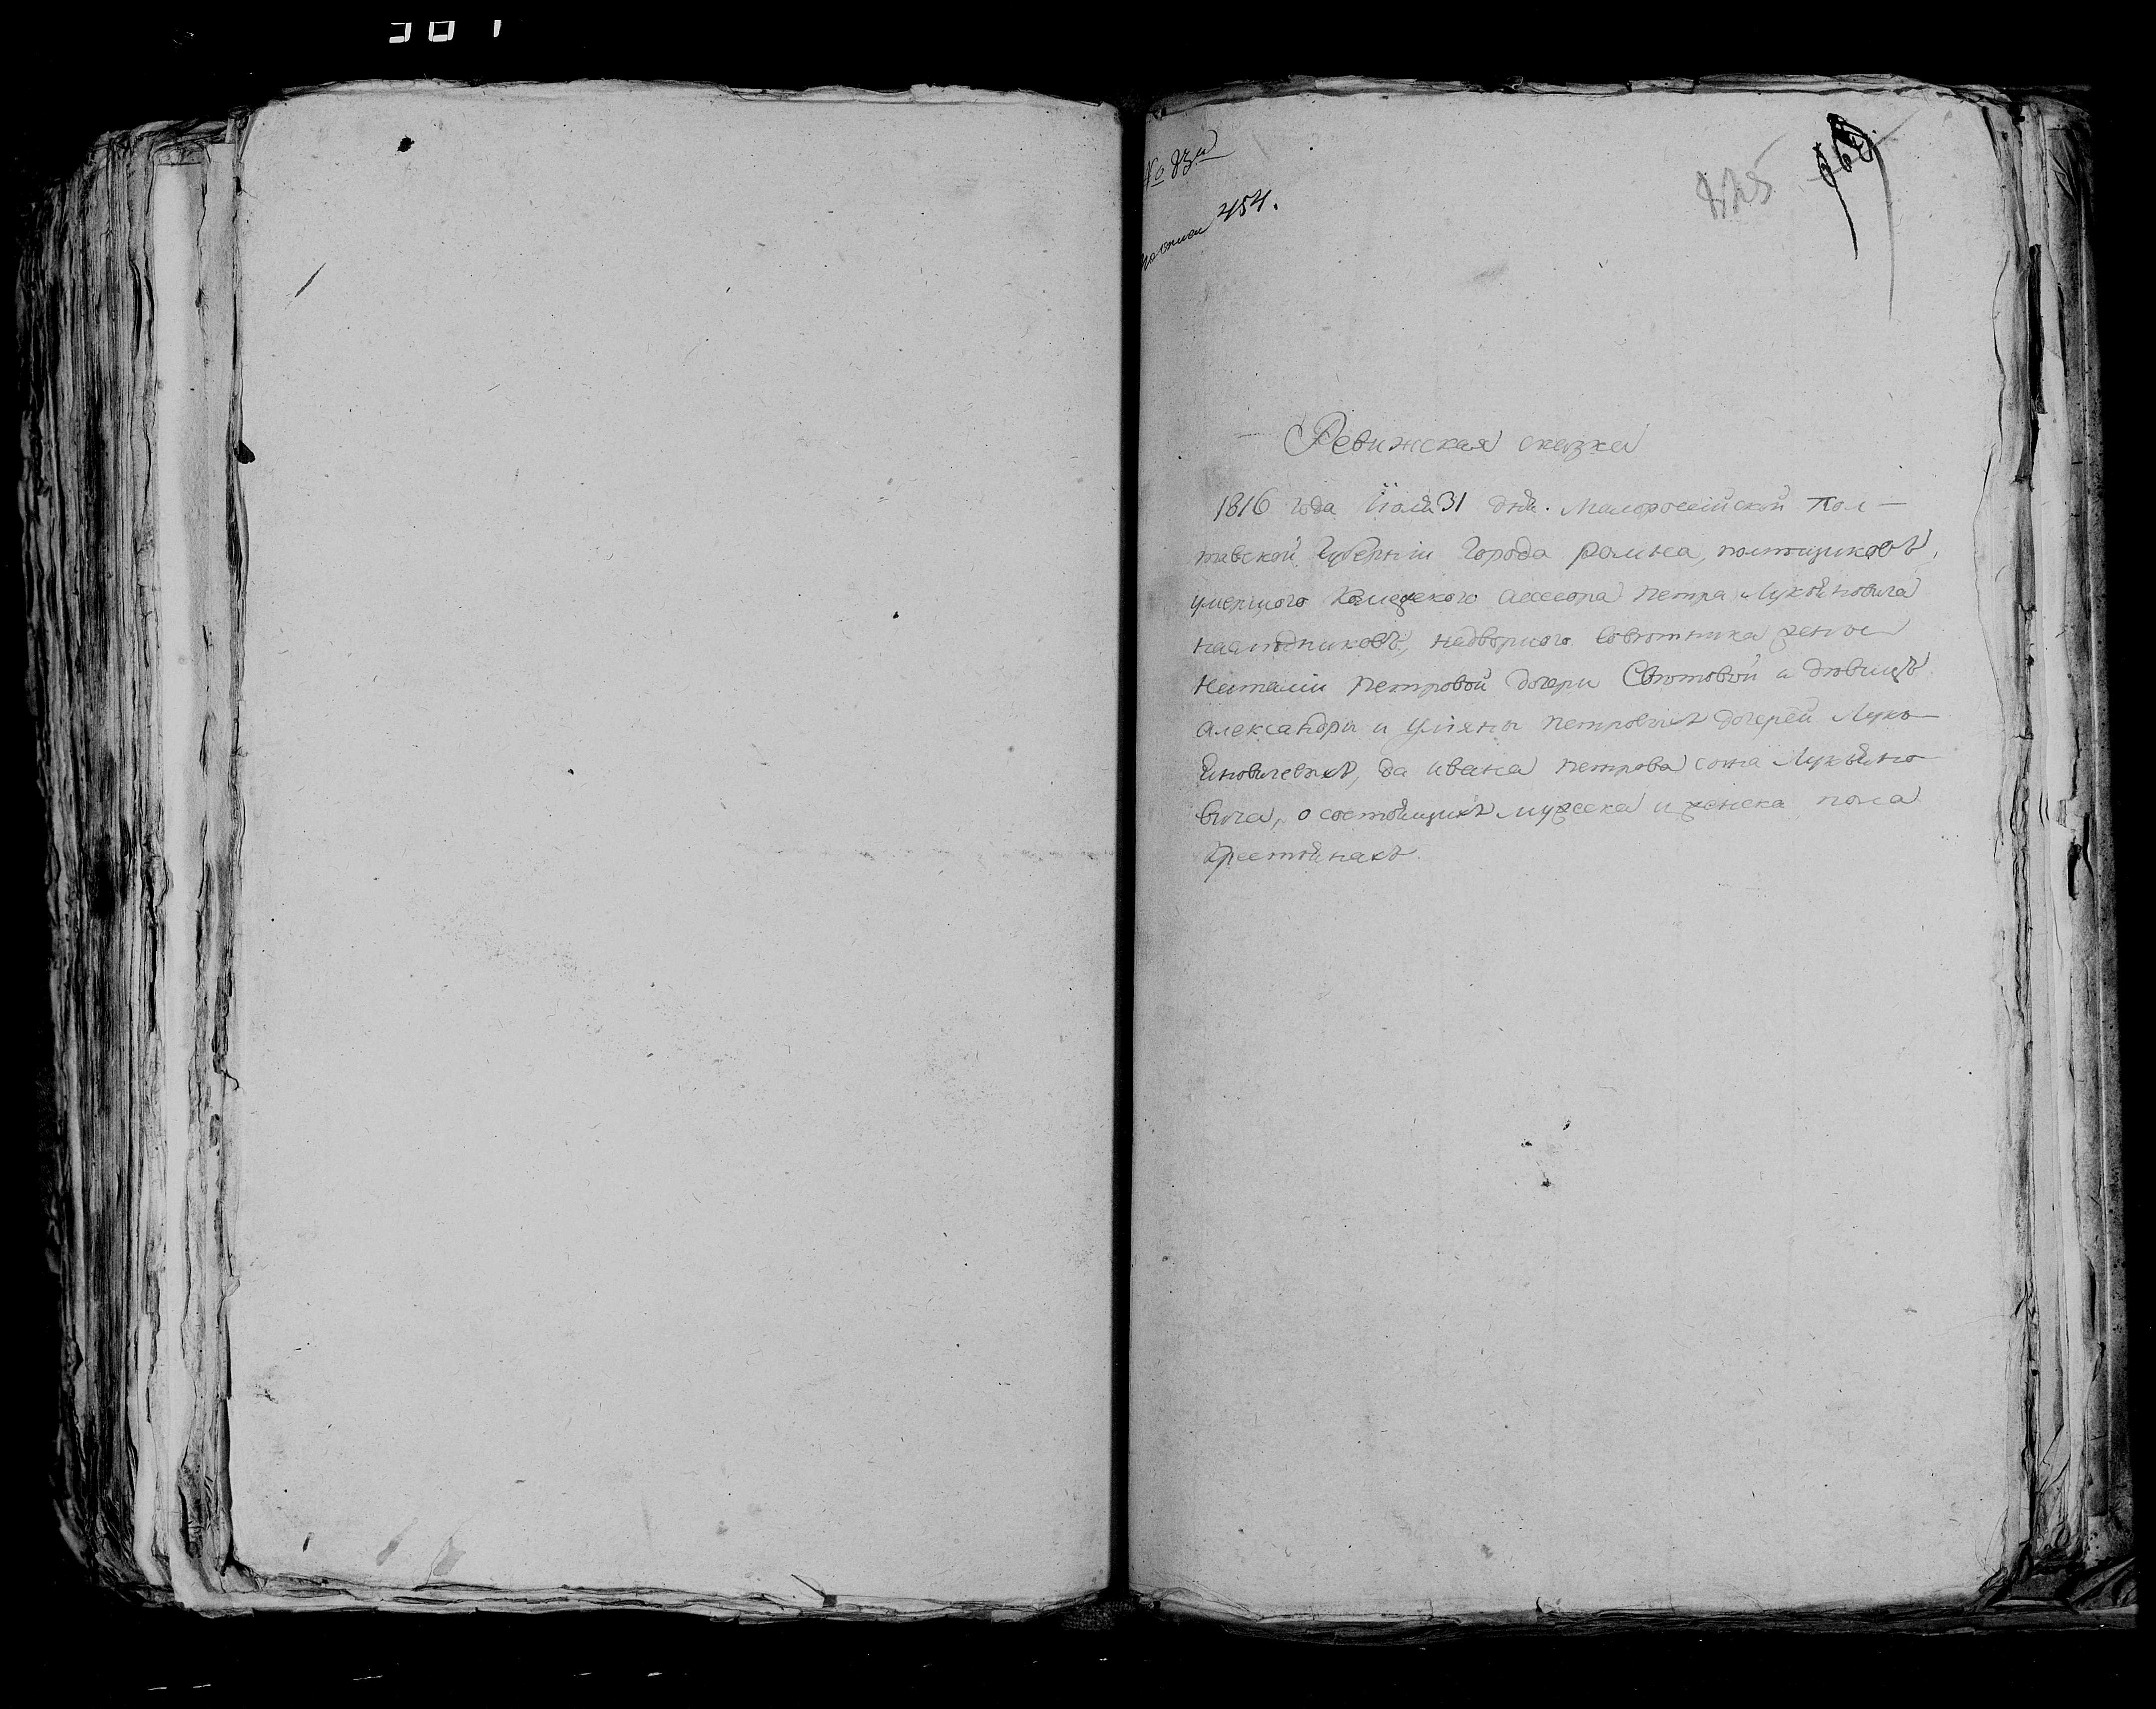 № 83й
по описи 454.
425
Ревижская сказка
1816 года Июля 31 дня. Малоросїйской Пол-
тавской Губернїи Города Ромна, помещиковъ,
умершого Колежского Асессора Петра Лукьяновича
наследниковъ, надворного Советника жены
Наталїи Петровой дочери Световой и девицъ
Александры и Улияны Петровыхъ дочерей Лукь-
яновичевыхъ, да ивана Петрова сына Лукьяно
вича, о состоящихъ мужеска и женска пола
Крестьянахъ.